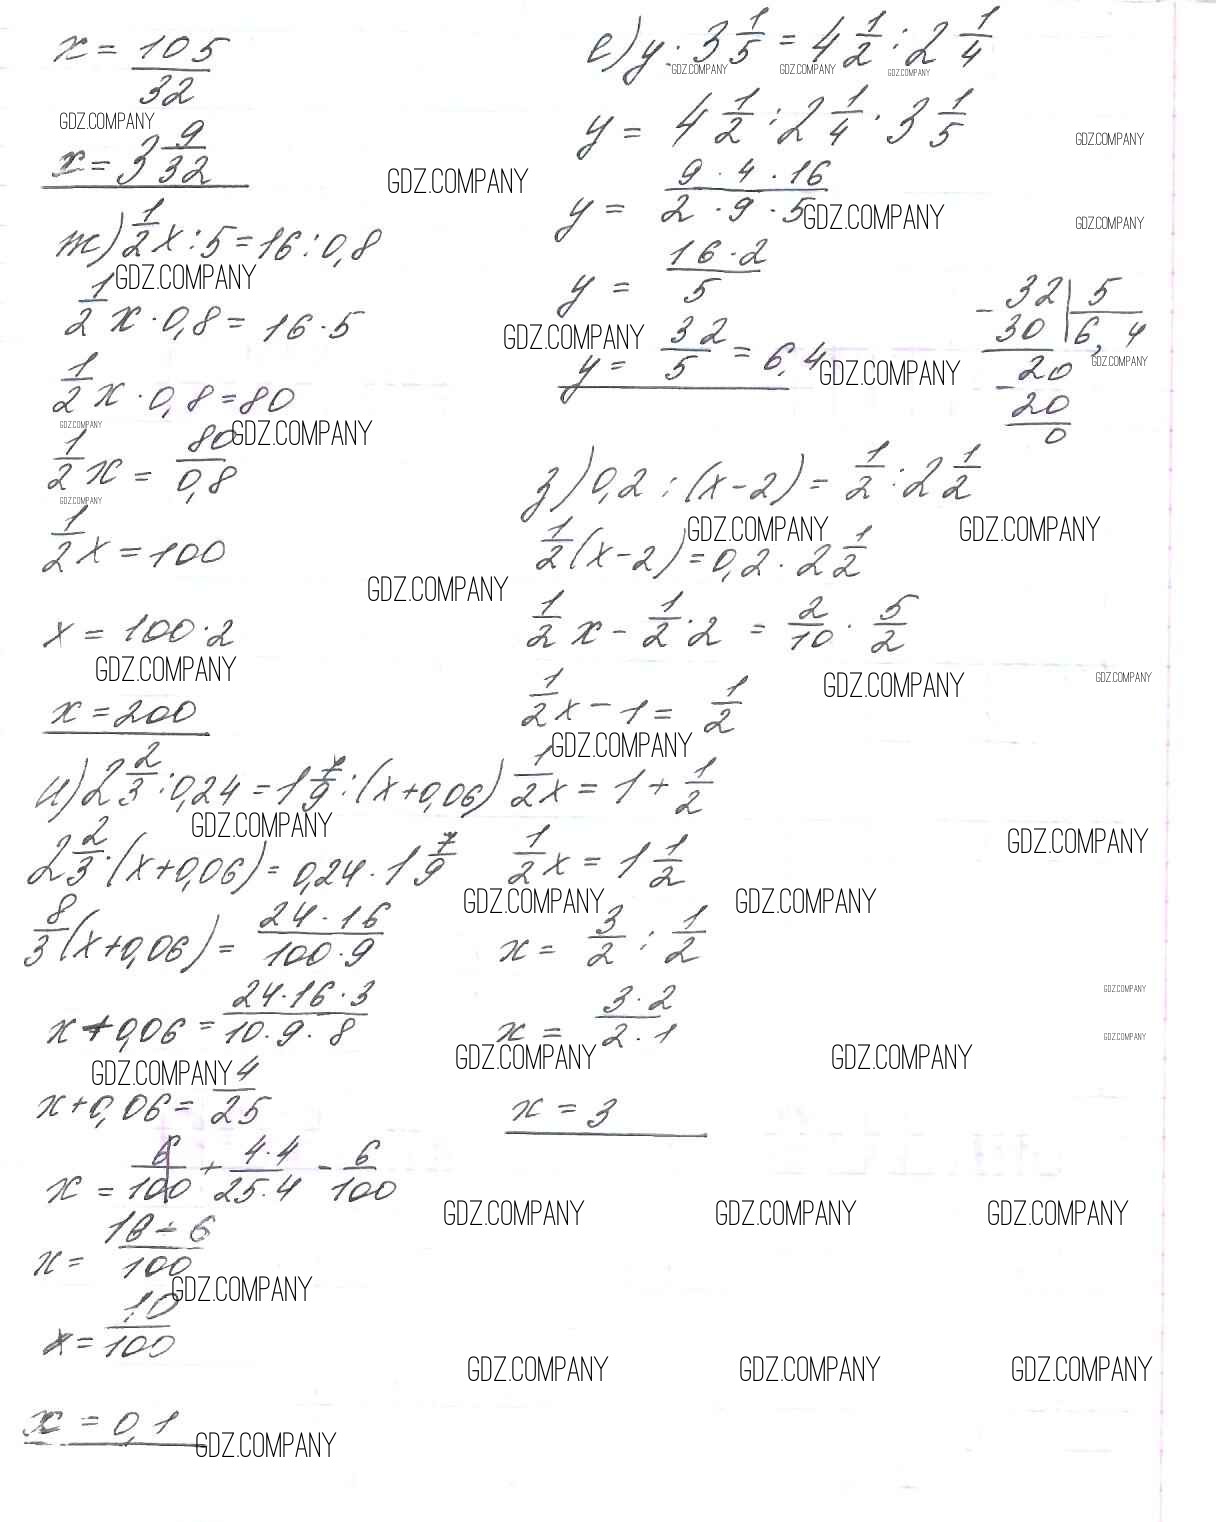 x = 105/32
GDZ.COMPANY
x = 3 9/32
GDZ.COMPANY
ж) 1/2 x : 5 = 16 : 0,8
GDZ.COMPANY
1/2 x · 0,8 = 16 · 5
1/2 x · 0,8 = 80
GDZ.COMPANY
GDZ.COMPANY
1/2 x = 80/0,8
GDZ.COMPANY
1/2 x = 100
GDZ.COMPANY
x = 100 · 2
GDZ.COMPANY
x = 200
и) 2 2/3 : 0,24 = 1 7/9 : (x + 0,06)
GDZ.COMPANY
2 2/3 · (x + 0,06) = 0,24 · 1 7/9
8/3 (x + 0,06) = 24 · 16/100 · 9
x + 0,06 = 24 · 16 · 3/10 · 9 · 8
GDZ.COMPANY
x + 0,06 = 4/25
x = 6/100 + 4 · 4/25 · 4 - 6/100
x = 16 - 6/100
GDZ.COMPANY
x = 10/100
x = 0,1
GDZ.COMPANY
е) y · 3 1/5 = 4 1/2 : 2 1/4
GDZ.COMPANY GDZ.COMPANY GDZ.COMPANY
y = 4 1/2 : 2 1/4 · 3 1/5
GDZ.COMPANY
y = 9 · 4 · 16/2 · 9 · 5
GDZ.COMPANY GDZ.COMPANY
y = 16 · 2/5
GDZ.COMPANY
y = 32/5 = 6,4
GDZ.COMPANY
- 32 | 5
30 | 6,4
GDZ.COMPANY
- 20
20
0
з) 0,2 : (x - 2) = 1/2 : 2 1/2
GDZ.COMPANY GDZ.COMPANY
1/2 (x - 2) = 0,2 · 2 1/2
1/2 x - 1/2 · 2 = 2/10 · 5/2
GDZ.COMPANY GDZ.COMPANY
1/2 x - 1 = 1/2
GDZ.COMPANY
1/2 x = 1 + 1/2
GDZ.COMPANY
1/2 x = 1 1/2
GDZ.COMPANY GDZ.COMPANY
x = 3/2 : 1/2
GDZ.COMPANY
x = 3 · 2/2 · 1
GDZ.COMPANY
GDZ.COMPANY GDZ.COMPANY
x = 3
GDZ.COMPANY GDZ.COMPANY GDZ.COMPANY
GDZ.COMPANY GDZ.COMPANY GDZ.COMPANY